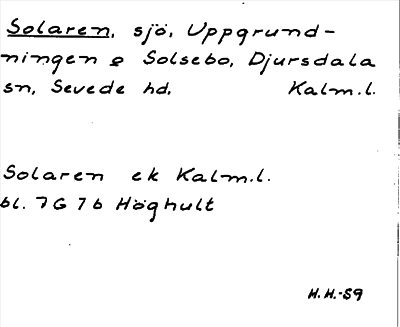 Solaren, sjö, Uppgrund-
ningen o Solsebo, Djursdala
sn, Sevede hd, Kalm.l.
Solaren ek Kalm.l.
bl. 7G 7b Höghult
H.H.-59